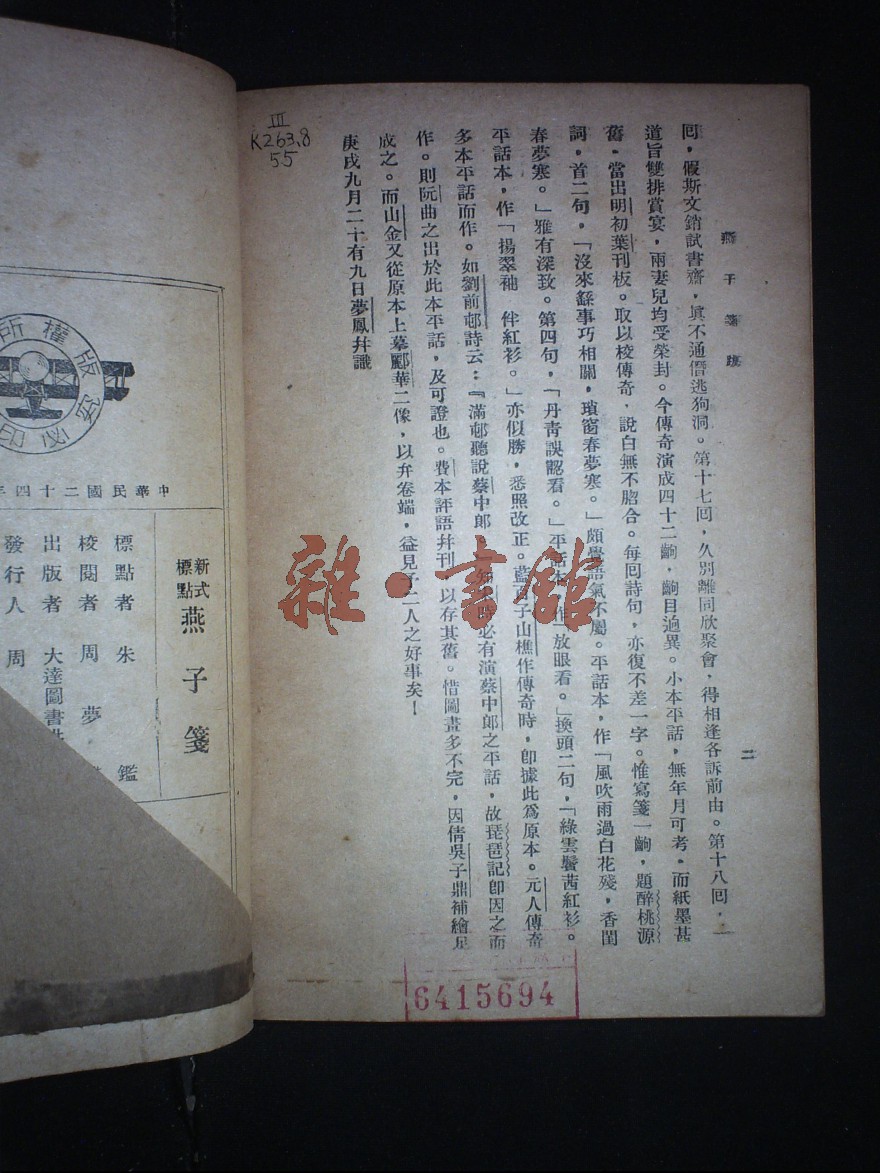 燕子箋跋
二
回，假斯文銷試書齋，眞不通僭逃狗洞。第十七回，久別離同欣聚會，得相逢各訴前由。第十八回，一
道旨雙排賞宴，兩妻兒均受榮封。今傳奇演成四十二齣，齣目逈異。小本平話，無年月可考。而紙墨甚
舊，當出明初葉刊板。取以校傳奇，說白無不脗合。每回詩句，亦復不差一字。惟寫箋一齣，題醉桃源
詞，首二句，「沒來繇事巧相關，瑣窗春夢寒。」頗覺語氣不屬。平話本，作「風吹雨過百花殘，香閨
春夢寒。」雅有深致。第四句，「丹靑誤認看。」平話本，作「放眼看。」換頭二句，「綠雲鬢茜紅衫。
平話本，作「揚翠袖　伴紅衫。」亦似勝，悉照改正。藍 子山樵作傳奇時，卽據此爲原本。元人傳奇
多本平話而作。如劉前邨詩云：『滿邨聽說蔡中郎 必有演蔡中郎之平話，故琵琶記卽因之而
作。則阮曲之出於此本平話，及可證也。費本評語幷刊 以存其舊。惜圖畫多不完，因倩吳子鼎補繪足
成之。而山金又從原本上摹酈華二像，以弁卷端，益見予二人之好事矣！
庚戌九月二十有九日夢鳳幷識
III
K263.8
55
版權所
翻印必
中華民國二十四年
新式標點 燕子箋
標點者 朱 鑑
校閱者 周夢
出版者 大達圖書
發行人 周
雜·書館
6415694